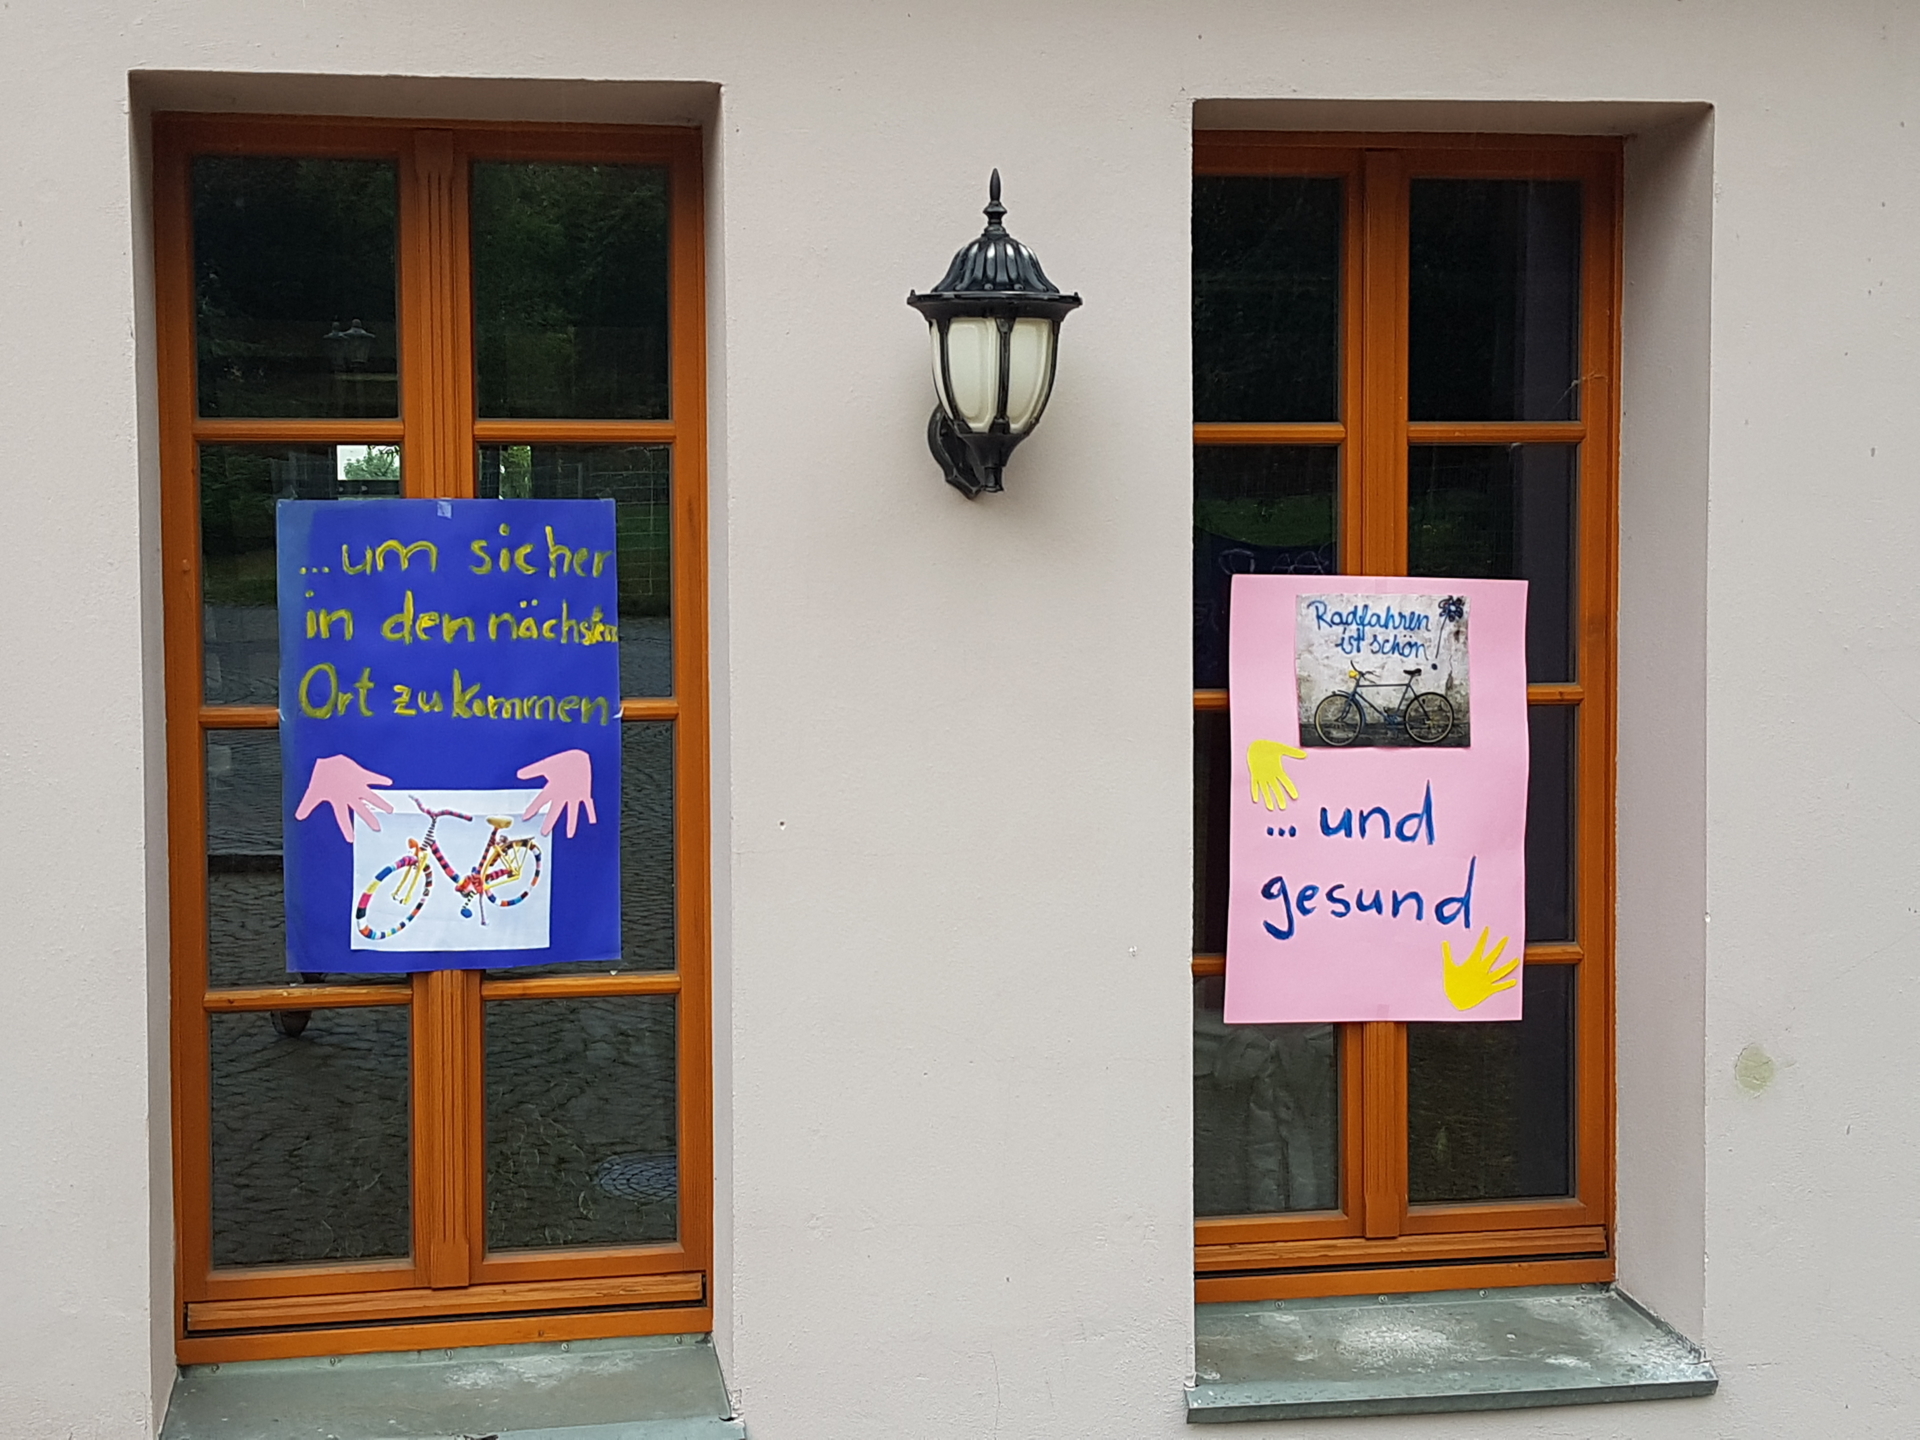 ...um sicher
in den nächsten
Ort zu kommen
Radfahren
ist schön!
... und
gesund